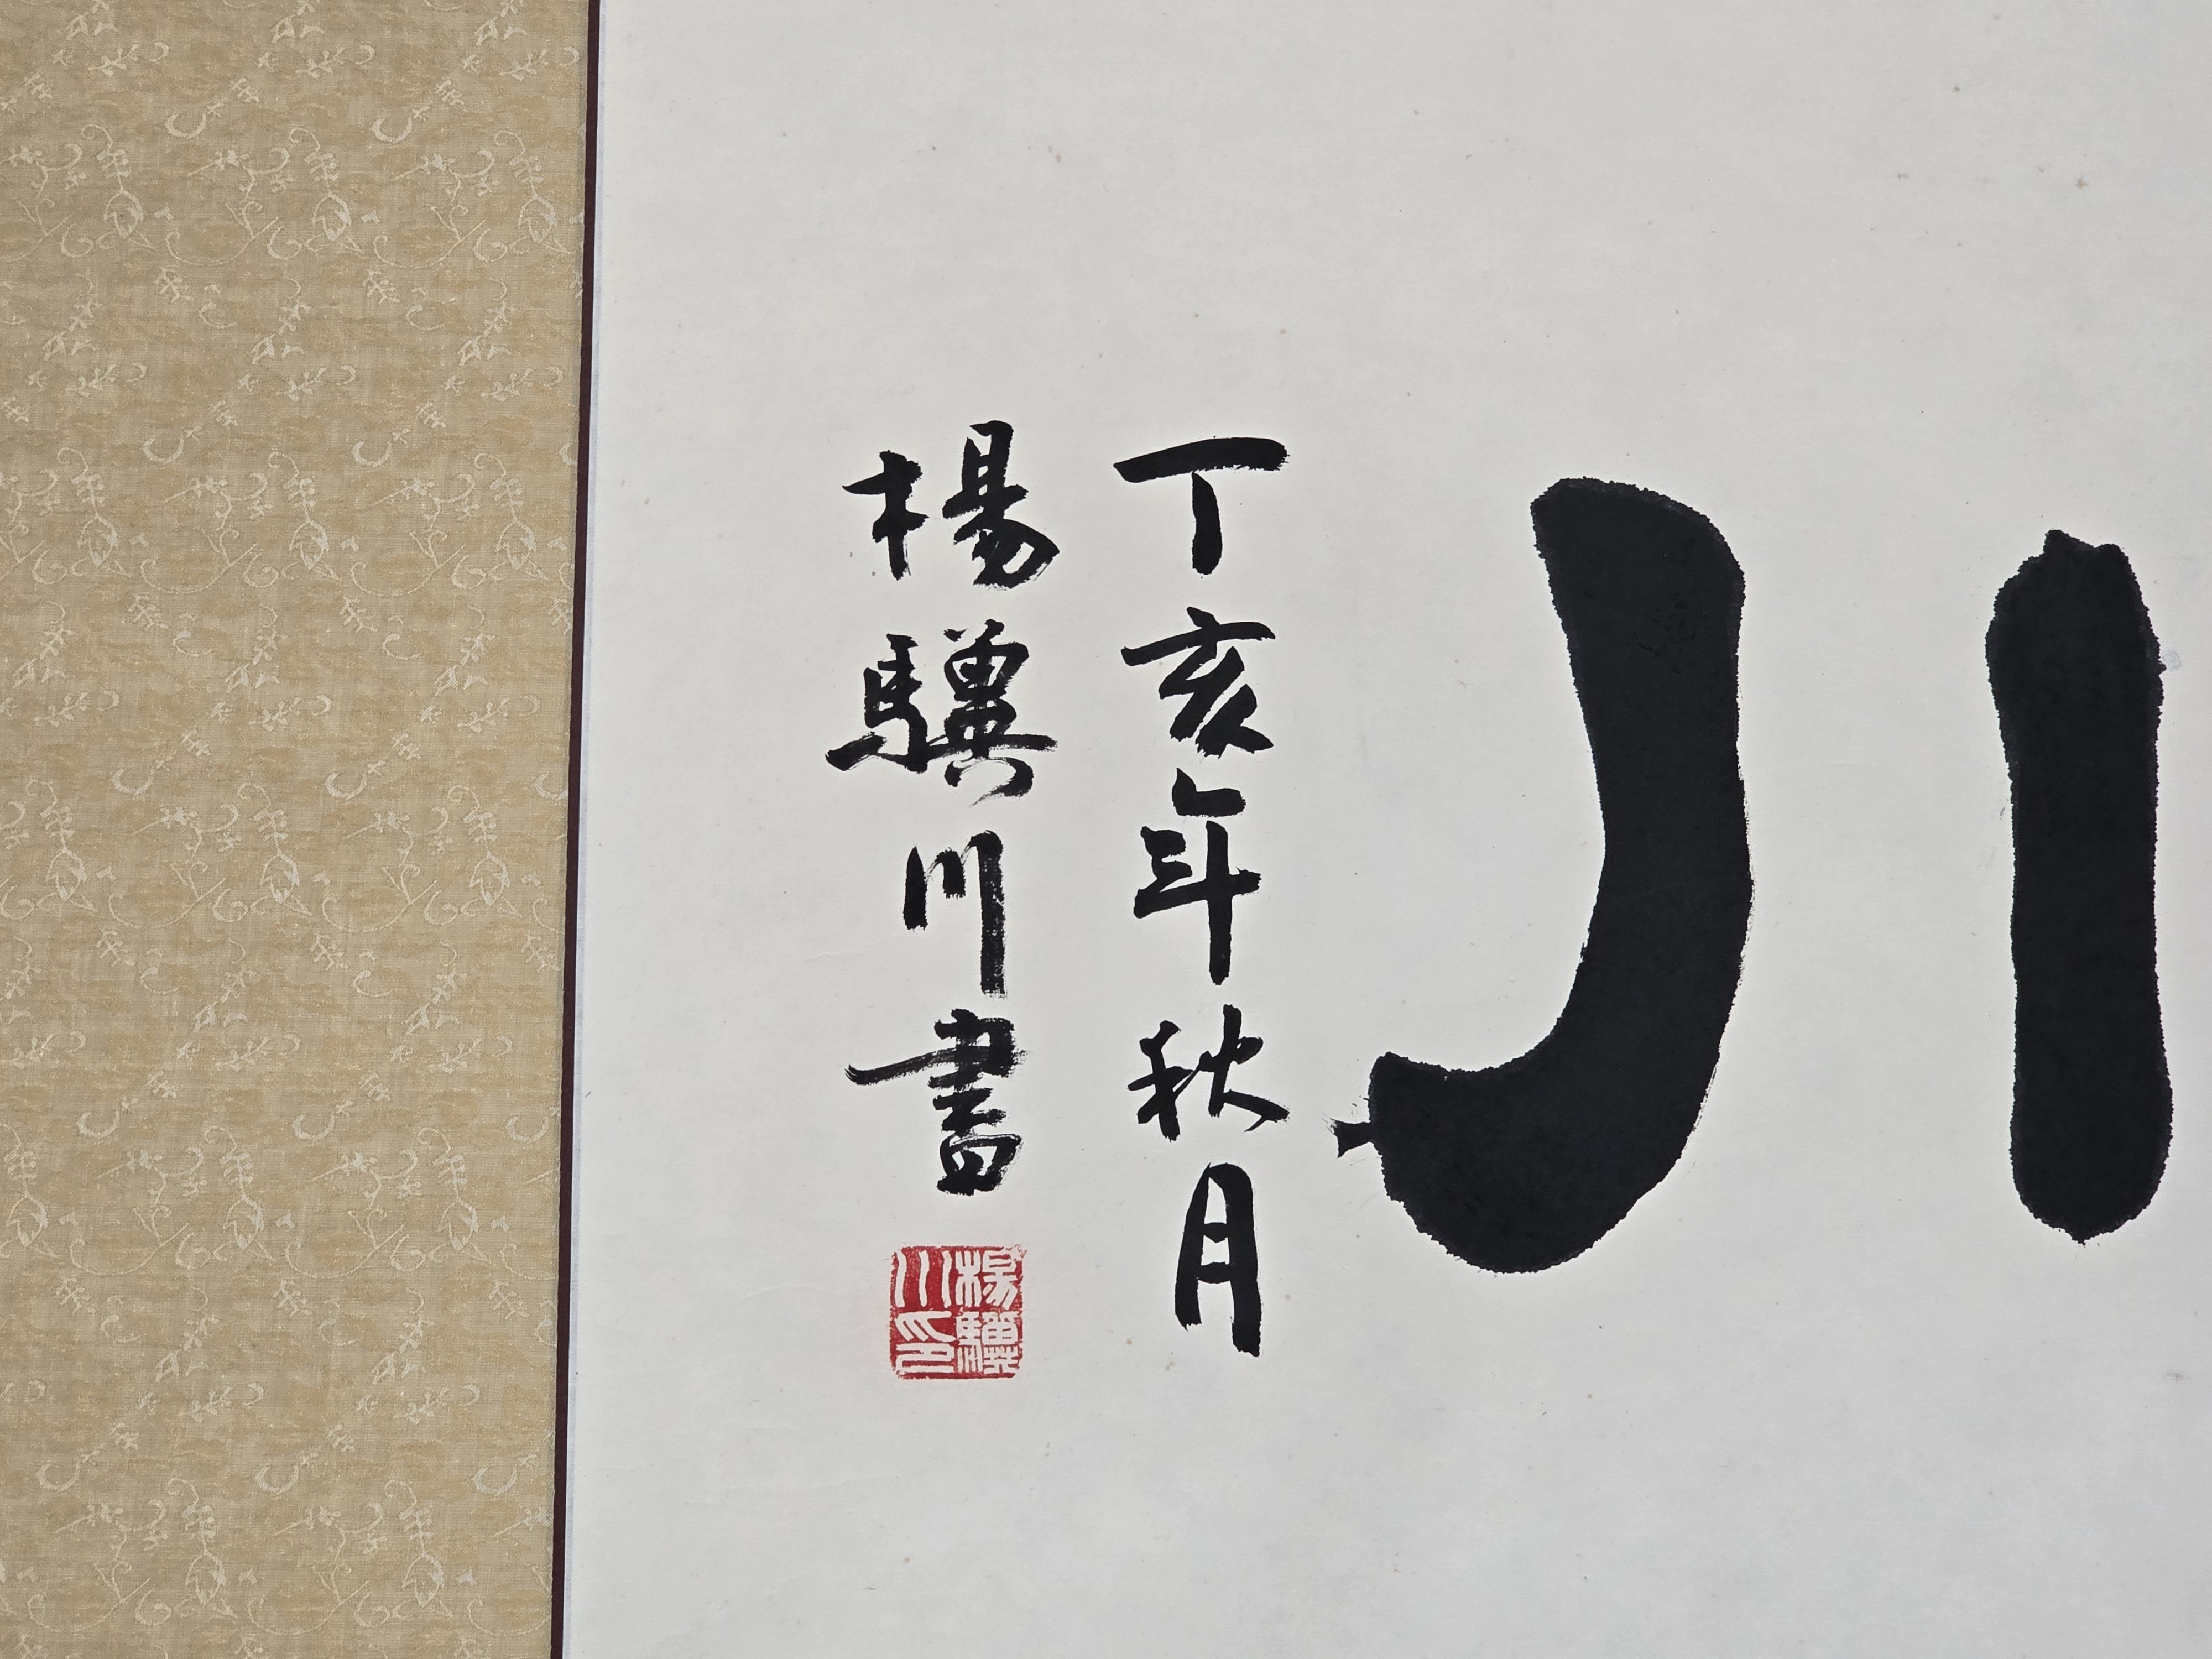 丁亥年秋月
楊驥川書
楊驥
川印